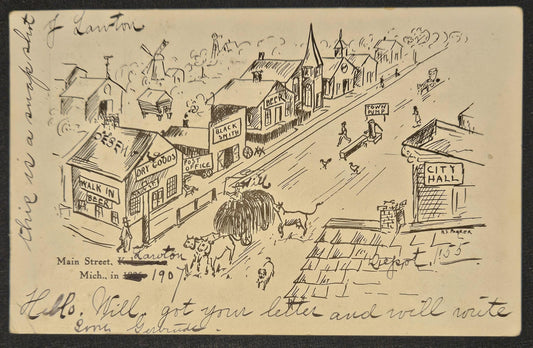 this is a snap shot of Lawton
BEER
TOWN PUMP
BLACK SMITH
POST OFFICE
DRY GOODS
WALK IN
BEER
CITY HALL
Will
Depot. 155
Main Street, Lawton
Mich., in 190
Hello. Will, got your letter and will write
Gertrude.